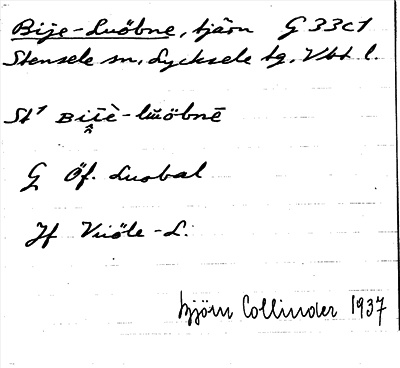 Bije-Luöbne, tjärn G 33c1
Stensele sn, Lycksele tg, Vbt l.
St¹ Biı̄è-lŭöbnē
G Öf. Luobal
Jf Vuöle-L.
Björn Collinder 1937